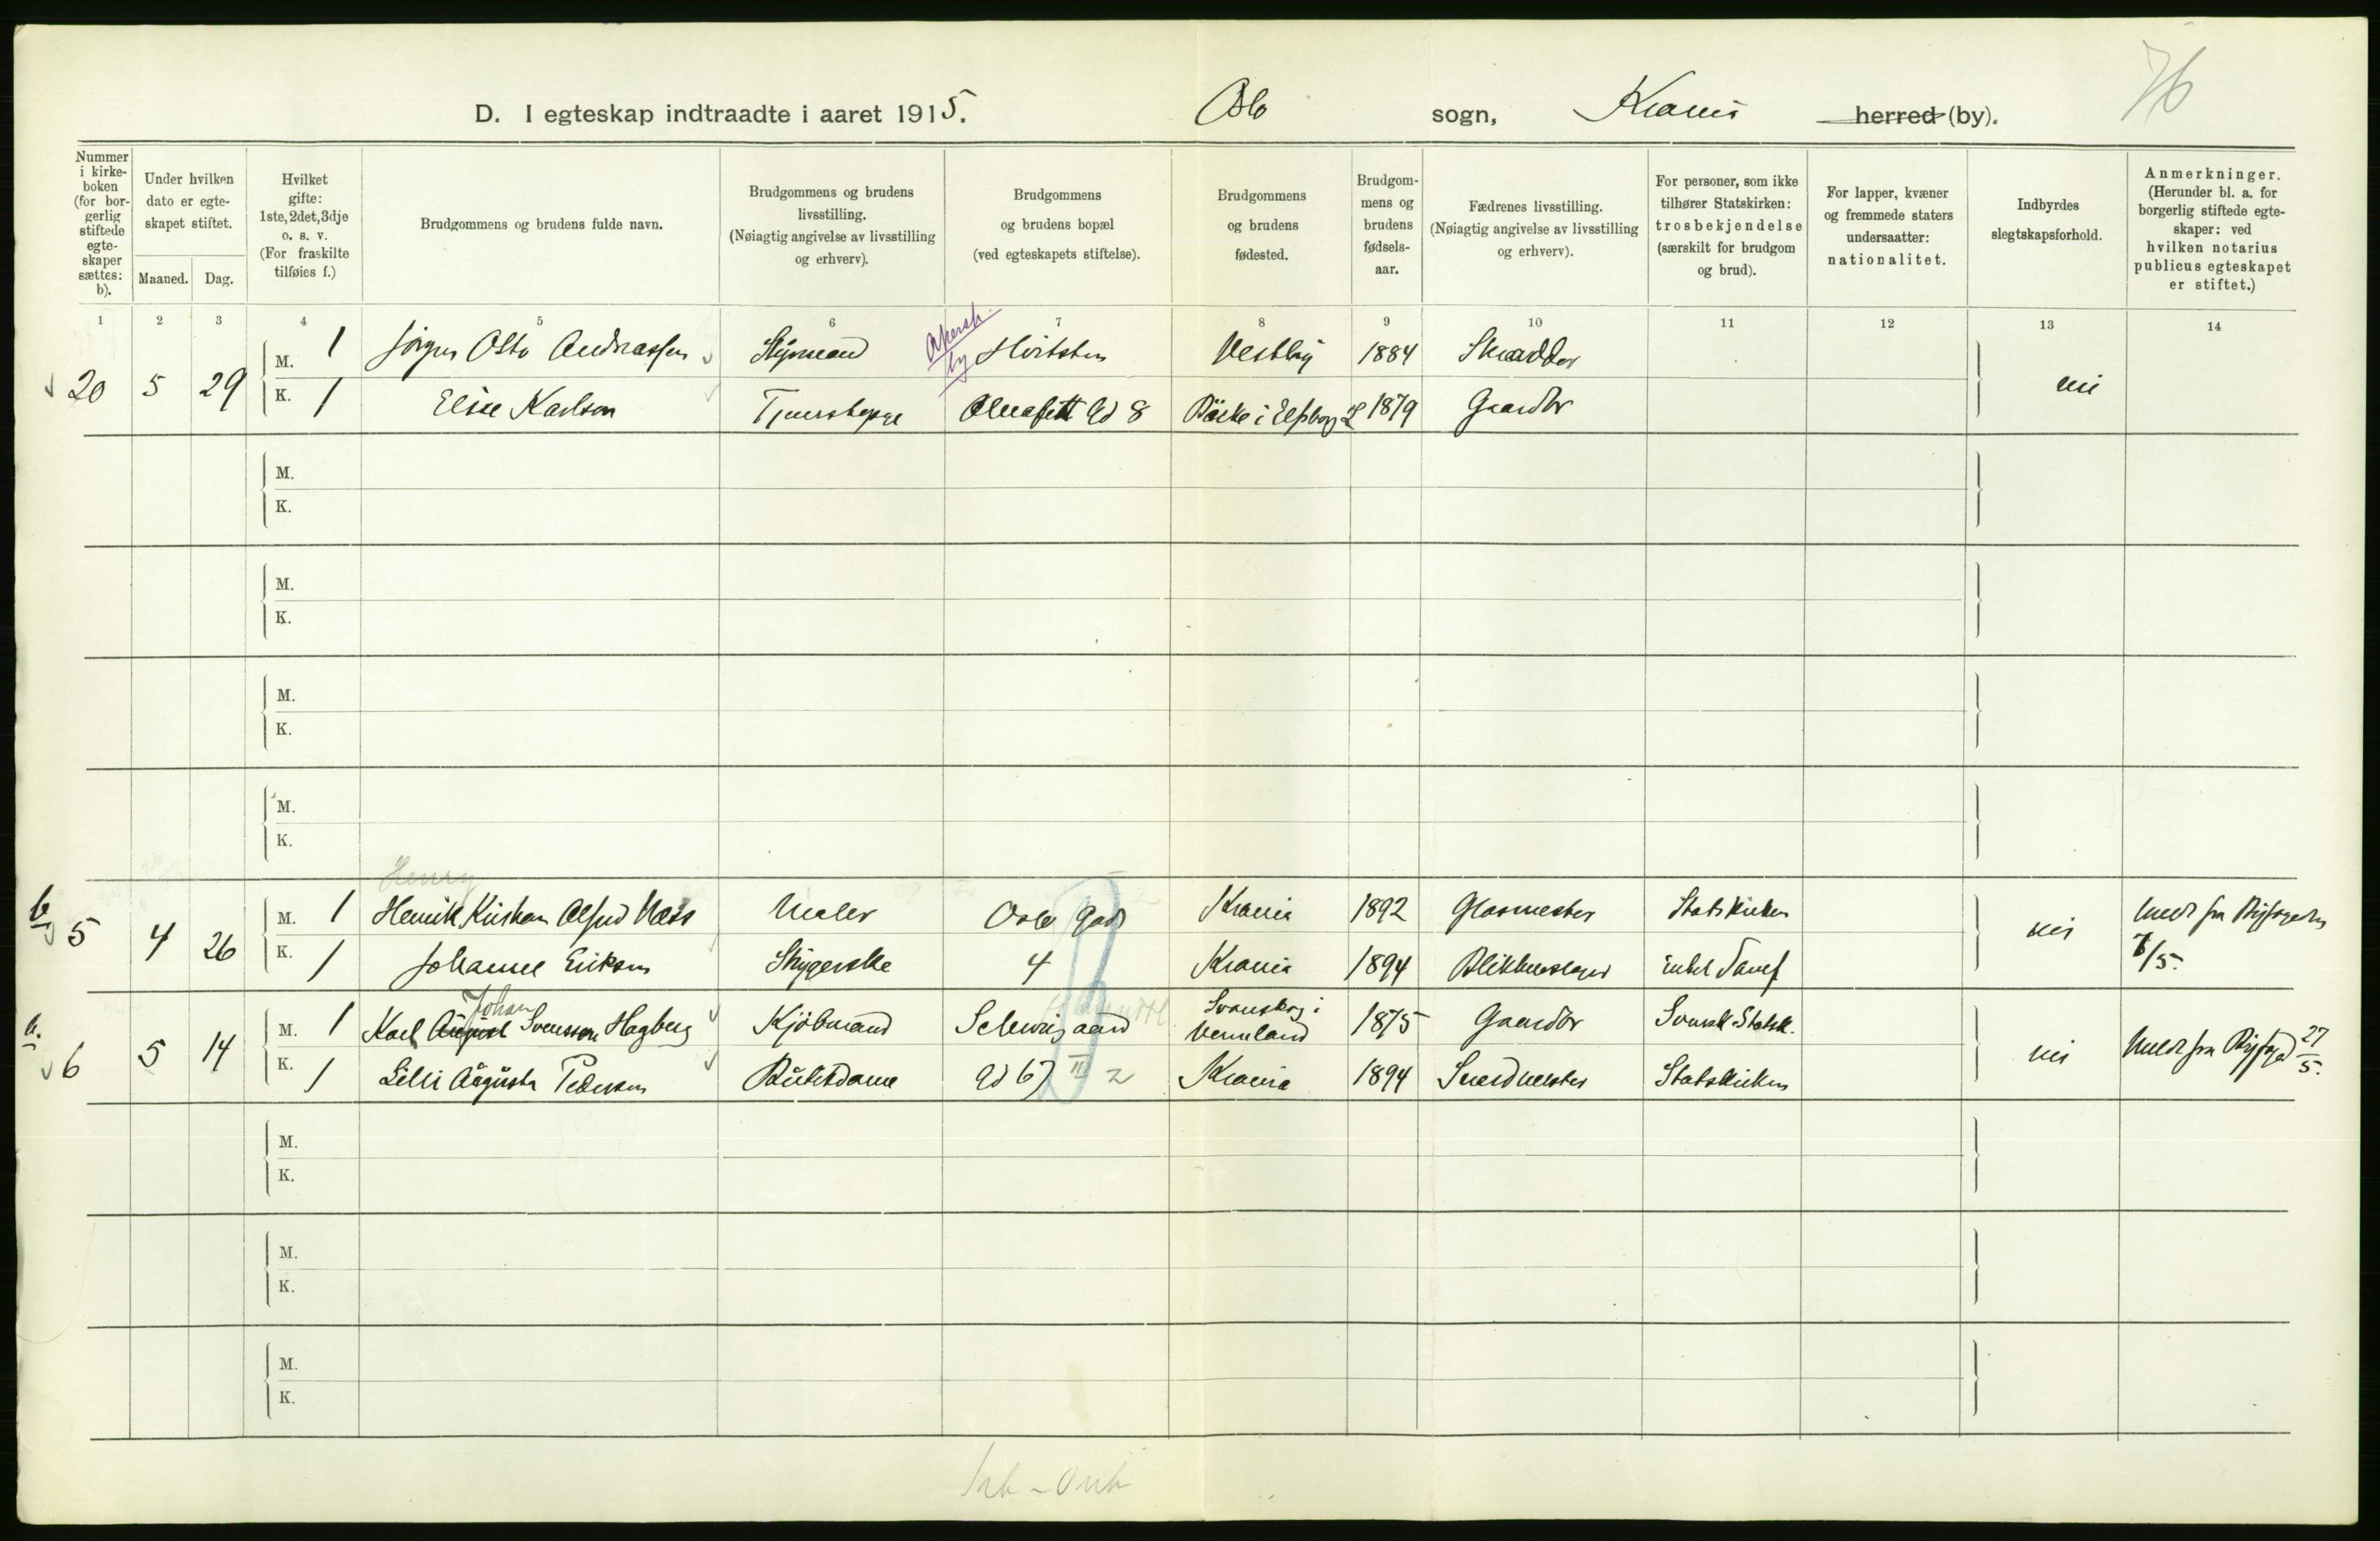 76
D. I egteskap indtraadte i aaret 1915. Oslo sogn, Krania herred (by).
Nummer i kirke-boken (for bor-gerlig stiftede egte-skaper sættes: b).
Under hvilken dato er egte-skapet stiftet.
Maaned. Dag.
Hvilket gifte: 1ste, 2det, 3dje o. s. v. (For fraskilte tilføies f.)
Brudgommens og brudens fulde navn.
Brudgommens og brudens livsstilling. (Nøiagtig angivelse av livsstilling og erhverv).
Brudgommens og brudens bopæl (ved egteskapets stiftelse).
Brudgommens og brudens fødested.
Brudgom-mens og brudens fødsels-aar.
Fædrenes livsstilling. (Nøiagtig angivelse av livsstilling og erhverv).
For personer, som ikke tilhører Statskirken: trosbekjendelse (særskilt for brudgom og brud).
For lapper, kvæner og fremmede staters undersaatter: nationalitet.
Indbyrdes slegtskapsforhold.
Anmerkninger. (Herunder bl. a. for borgerlig stiftede egte-skaper: ved hvilken notarius publicus egteskapet er stiftet.)
1 2 3 4 5 6 7 8 9 10 11 12 13 14
M. 1 Jörgen Otto Andreassen Styrmand Akersh. by Hvitsten Vestby 1884 Skrædder
20 5 29 nei
K. 1 Elise Karlson Tjeneste Gd 8 Bäcke i Elfsborg L 1879 Gaardbr
M.
K.
M.
K.
M.
K.
M.
K.
Henry
b 5 4 26 M. 1 Henrik Kristian Alfred Næss Maler Oslo Gade Krania 1892 Glasmester Statskirken nei Medt fra Byfogden
K. 1 Johanne Eriksen Strygerske 4 Krania 1894 Blikkenslager 7/5.
Johan
b. 6 5 14 M. 1 Karl August Svensson Hagberg Kjöbmand Schweigaard Svanskog i Vermland 1875 Gaardbr Svensk Statsk. nei Medt fra Byfogd 27/5.
K. 1 Lilli Augusta Pedersen Butikdame Gd 67 II 2 Krania 1894 Smedmester Statskirken
M.
K.
M.
K.
M.
K.